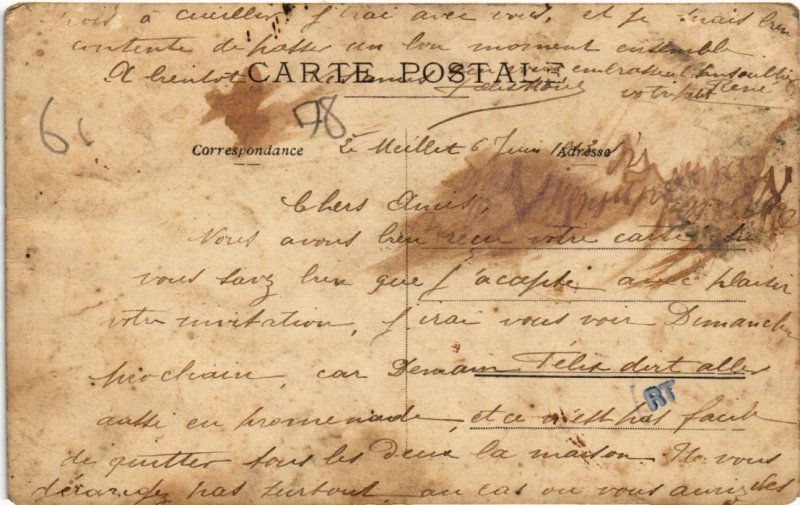 pois à cueillir, j'irai avec vous, et je serais bien
contente de passer un bon moment ensemble
A bientôt
vous embrassent
votre
CARTE POSTALE
61
78
Correspondance
Adresse
Le Meillet 6 Juin
Chers Amis,
Nous avons bien reçu votre carte
vous savez bien que j'accepte avec plaisir
votre invitation, j'irai vous voir Dimanche
prochain, car Demain Félix doit aller
aussi en promenade, et ce n'est pas facile
RT
de quitter tous les deux la maison. Ne vous
dérangez pas surtout, au cas ou vous auriez des